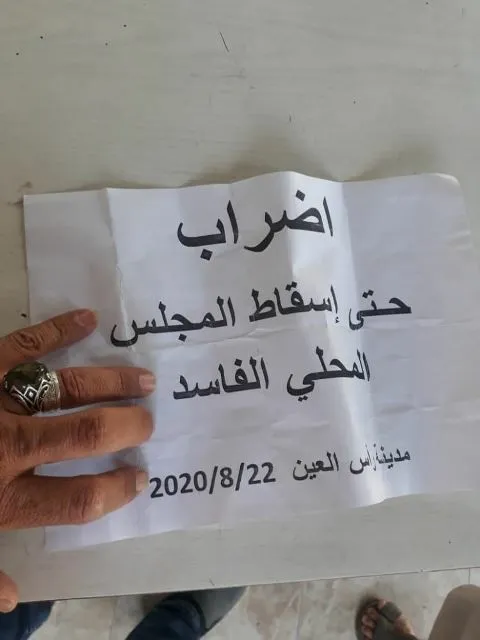 اضراب
حتى إسقاط المجلس
المحلي الفاسد
مدينة رأس العين 2020/8/22